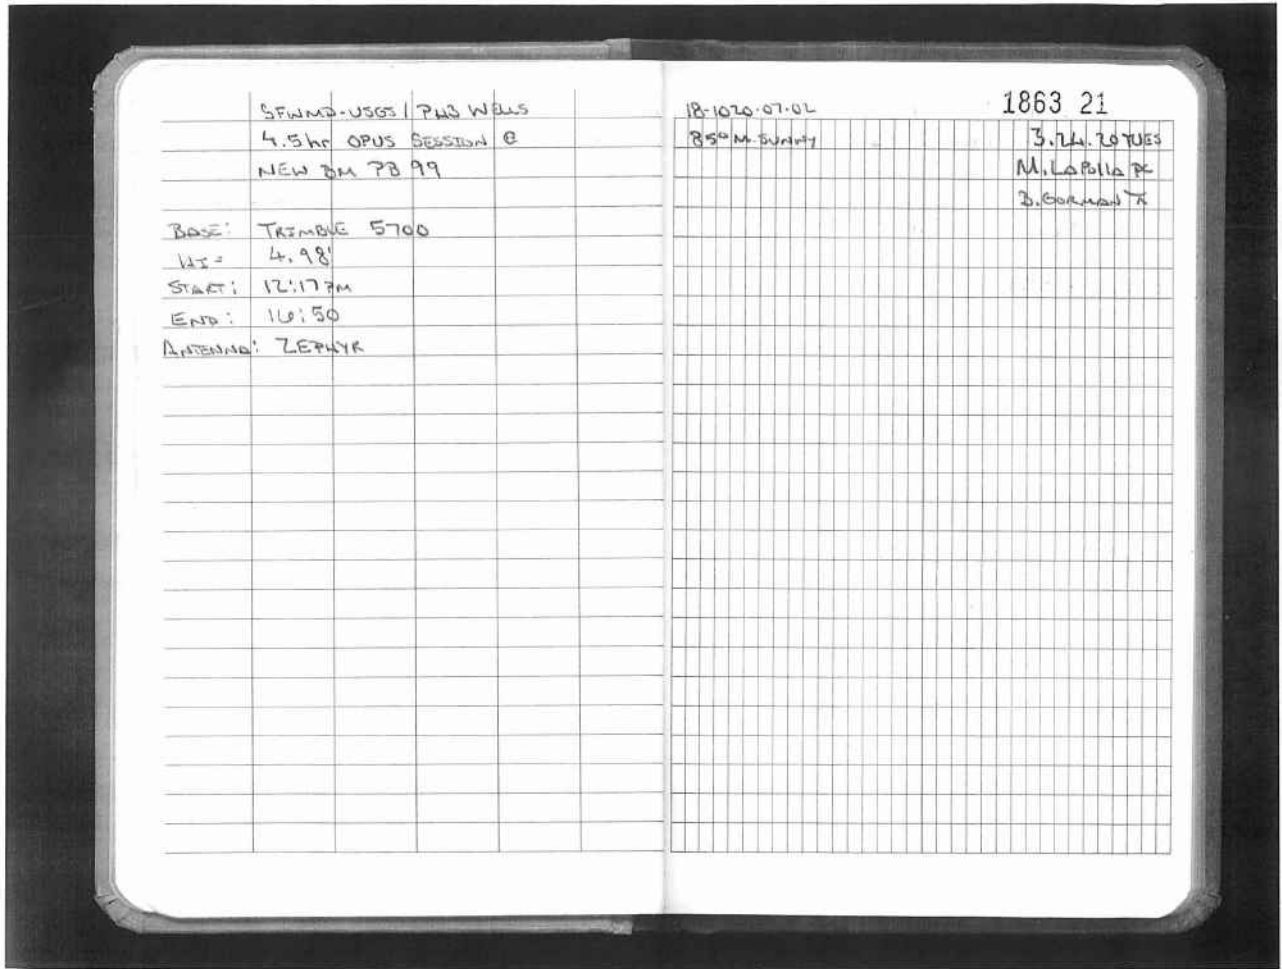 SFWMD-USGS / PHB WELLS
4.5hr OPUS SESSION @
NEW BM PB 99
BASE: TRIMBLE 5700
HI= 4.98'
START: 12:17PM
END: 16:50
ANTENNA: ZEPHYR
18-1020.07.02
1863 21
85° M. SUNNY
3.24.20 TUES
M. LaPolla PC
B. GORMAN